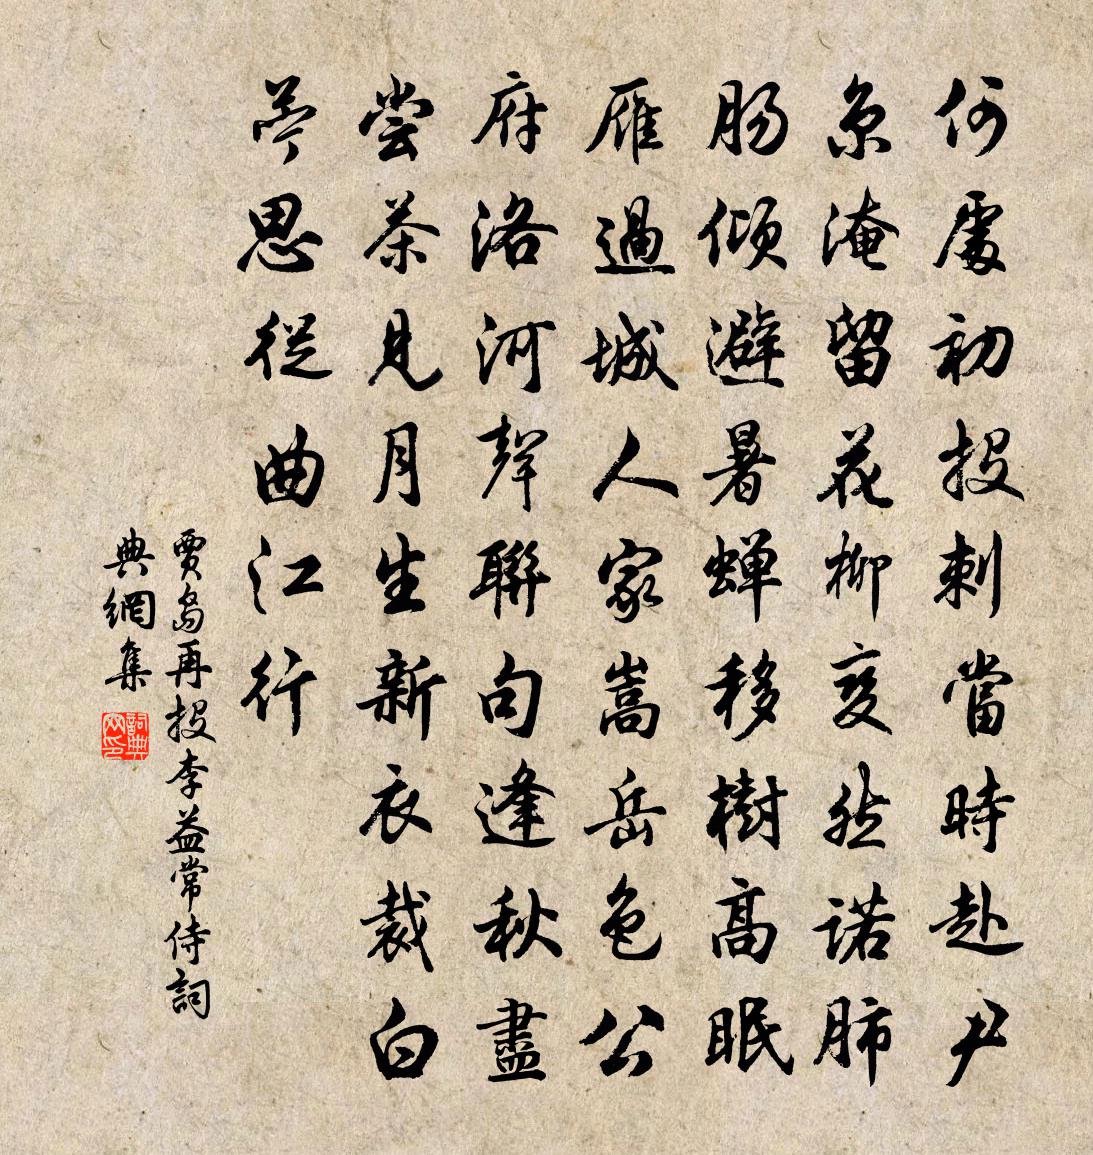 何處初投刺當時赴尹
京淹留花柳變然諾肺
腸傾避暑蟬移樹高眠
雁過城人家嵩岳色公
府洛河聲聯句逢秋盡
嘗茶見月生新衣裁白
苧思從曲江行
賈島再投李益常侍詞
典網集
詞典
网印